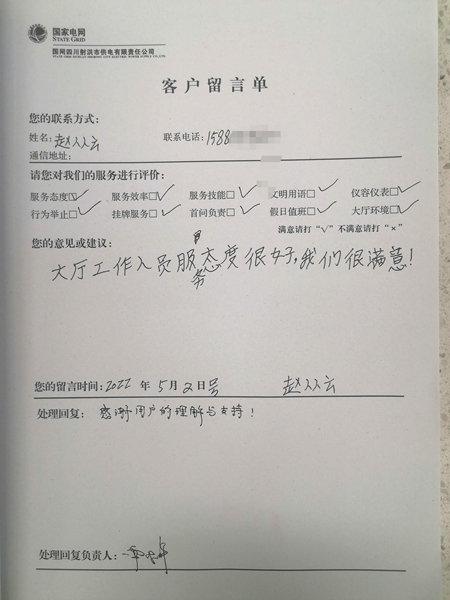 国家电网
STATE GRID
国网四川射洪市供电有限责任公司
STATE GRID SICHUAN SHEHONG CITY ELECTRIC POWER SUPPLY CO., LTD.
客户留言单
您的联系方式:
姓名: 赵从云 联系电话: 1588
通信地址:
请您对我们的服务进行评价:
服务态度☑ 服务效率☑ 服务技能☑ 文明用语☑ 仪容仪表☑
行为举止☑ 挂牌服务☑ 首问负责☑ 假日值班☑ 大厅环境☑
满意请打“√” 不满意请打“×”
您的意见或建议:
大厅工作人员服务态度很好,我们很满意!
您的留言时间: 2022 年 5 月 2 日号 赵从云
处理回复: 感谢用户的理解与支持!
处理回复负责人: